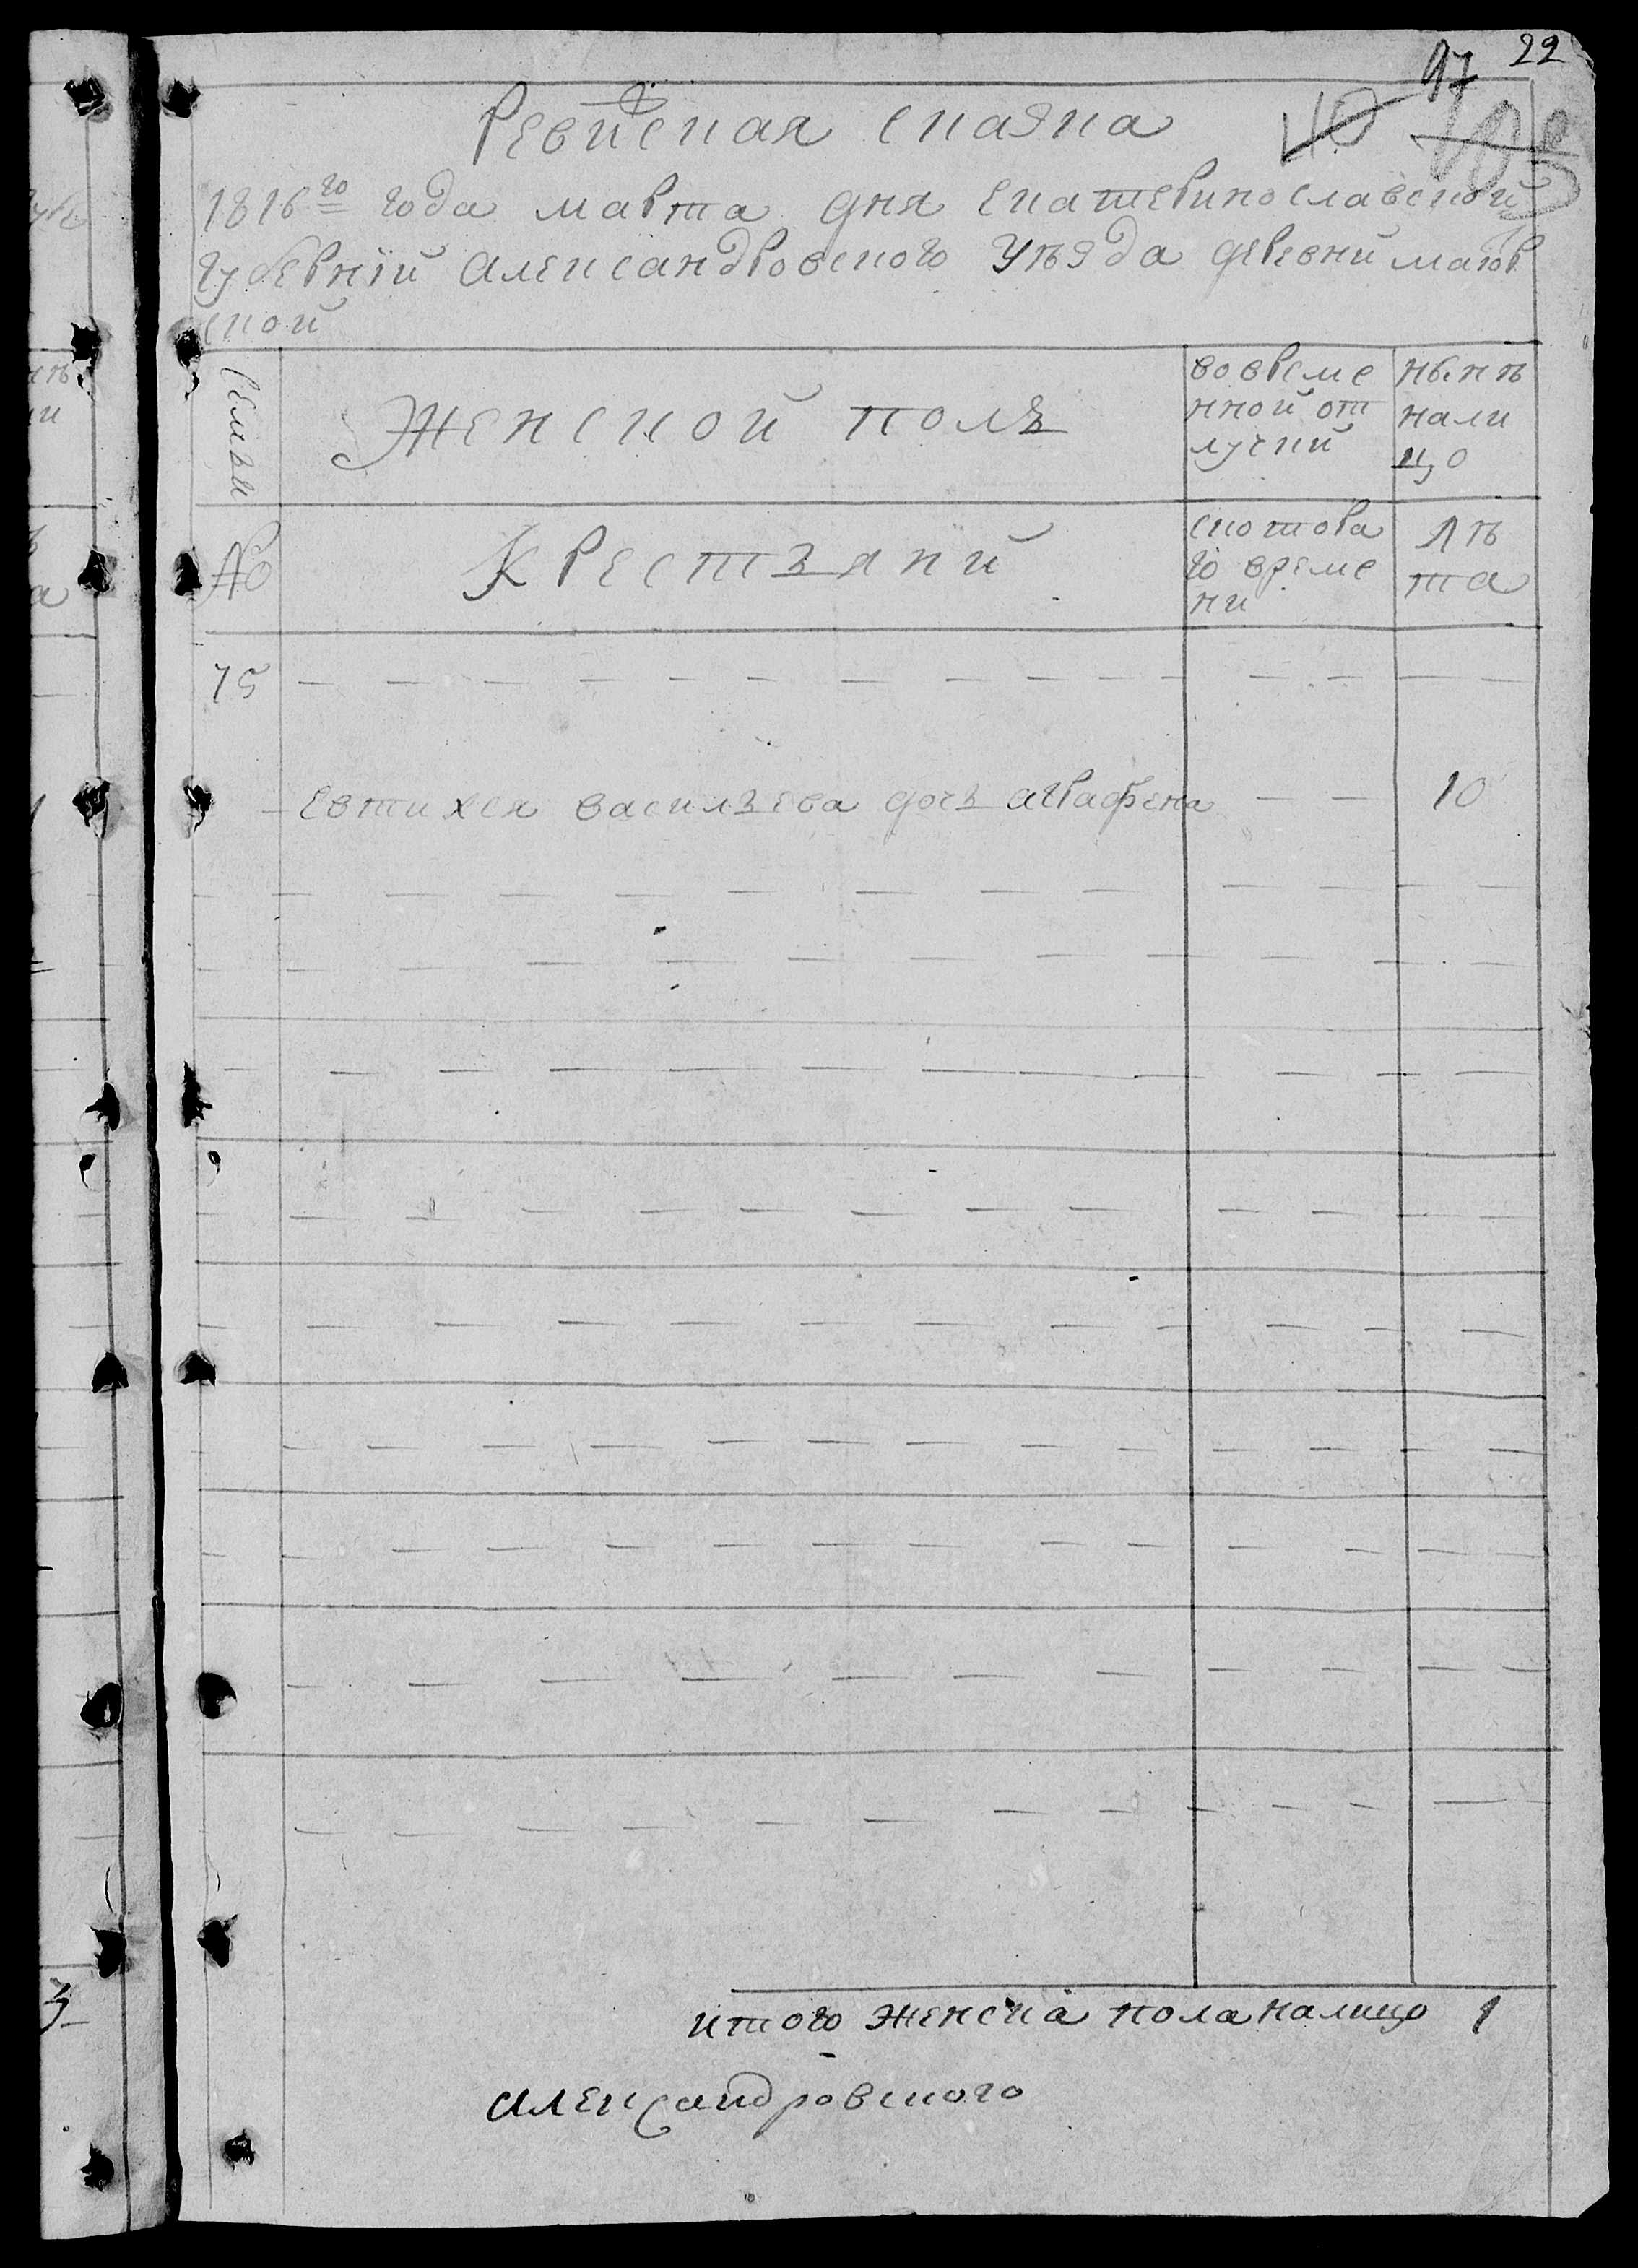 22
97
110
103
Ревиская сказка
1816го года марта дня Екатеринославской
губернїй Александровского уѣзда деревни маіор
ской
Семьи
Женской полъ
во време
нной от
лучки
нынѣ
нали
цо
№
Крестьяни
с которо
го време
ни
лѣ
та
75
Евтихея васильева дочь аграфена 10
итого женска пола налицо 1
Александровского